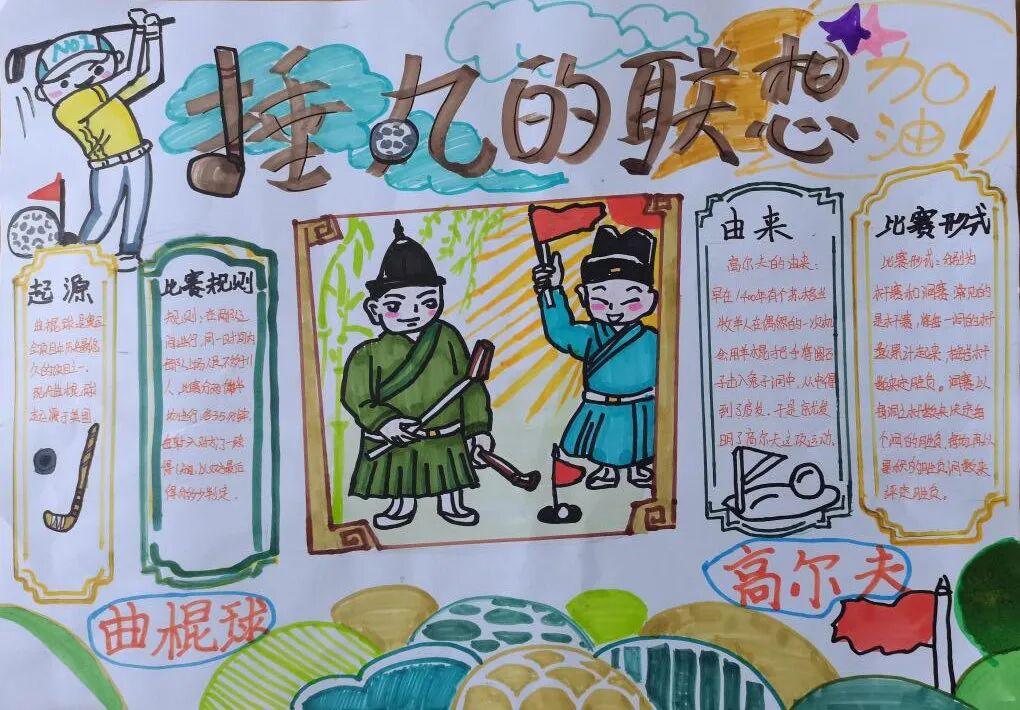 NO.1
捶丸的联想
加
油!
起源
曲棍球是奥运
会项目中历史最悠
久的项目之一.
现代曲棍球
起源于英国
比赛规则
规则:在两队之
间进行,同一时间内
每队上场人员不能多于11
人,比赛分两个半
场进行,各35分钟,
由来
高尔夫的由来:
早在1400年有个苏格兰
牧羊人在偶然的一次机
会用羊棍子把一个圆石
子击入兔子洞中,从中得
到了启发,于是就发
明了高尔夫这项运动.
比赛形式
比赛形式:分别为
杆赛和洞赛.常见的
是杆赛,将每一洞的杆
数累计起来,
来决定胜负.洞赛以
每洞之杆数来决定每
个洞的胜负,
评定胜负.
曲棍球
高尔夫